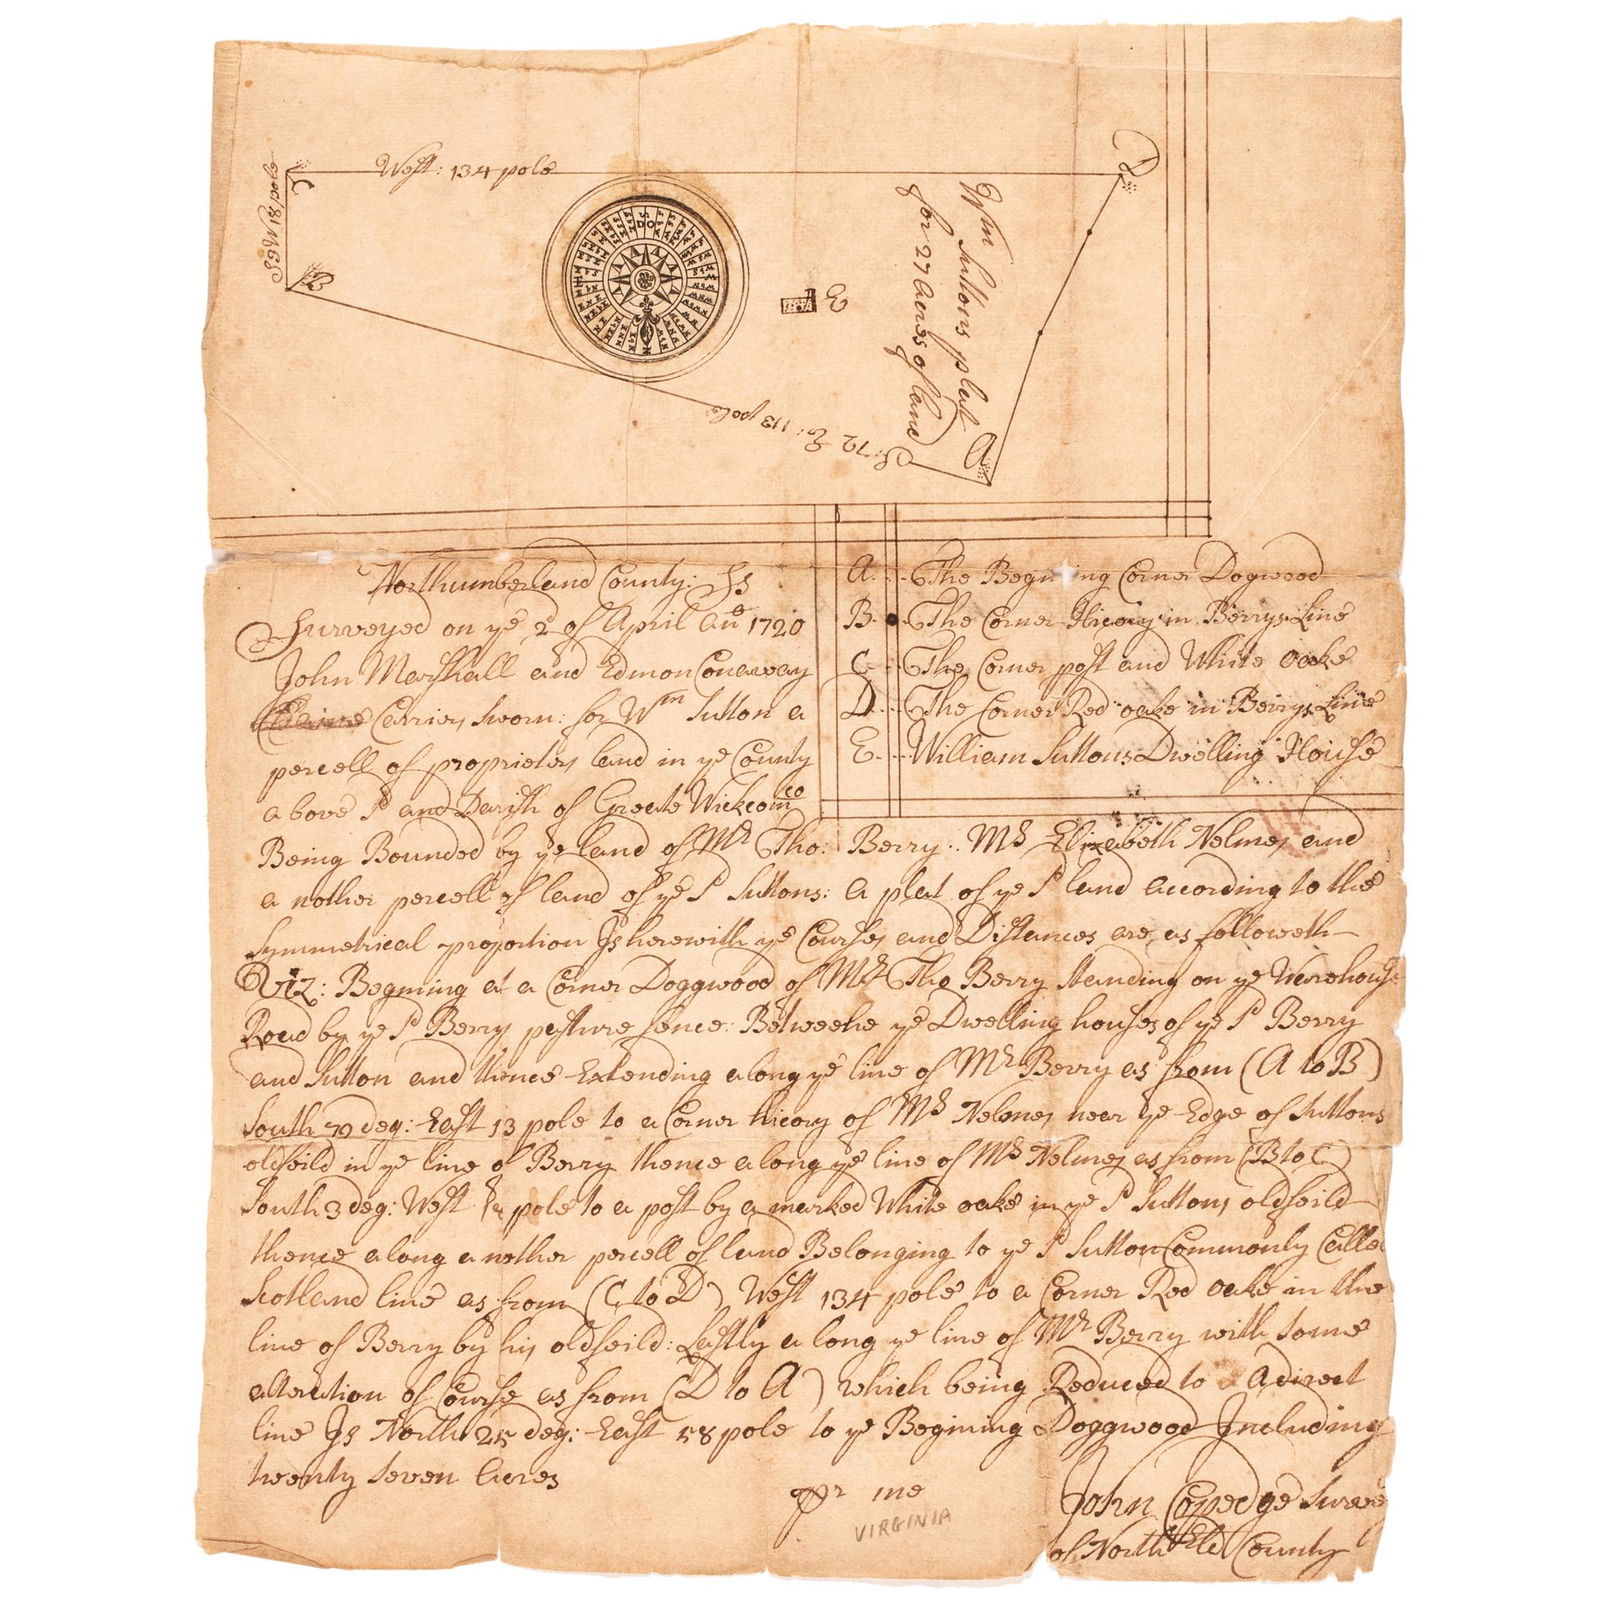 West: 134 pole
S 3 W 18 pole
C
D
B
E
A
Wm Suttons plat
for 27 Acres of land
S: 72 E: 113 pole
Northumberland County: Ss
Surveyed on ye 2 of April Ano 1720
John Marshall and Edmon Conaway
Carriers Sworn: for Wm Sutton a
percell of proprietors land in ye County
above Sd and Parish of Greate Wickcomco
A. The Begining Corner Dogwood
B. The Corner Hicory in Berrys Line
C. The Corner post and White oake
D. The Corner Red oake in Berrys Line
E. William Suttons Dwelling House
Being Bounded by ye land of Mr Tho: Berry: Ms Elizabeth Nelmes and
a nother percell of land of ye Sd Suttons: a plat of ye Sd land according to the
Symmetrical proportion Is herewith ye Courses and Distances are as followeth
Viz: Begining at a Corner Doggwood of Mr Tho Berry standing on ye Warehouse
Road by ye Sd Berrys pasture fence: Betweene ye Dwelling houses of ye Sd Berry
and Sutton and thence Extending along ye line of Mr Berry as from (A to B)
South deg: East 13 pole to a Corner hicory of Ms Nelmes near ye Edge of Suttons
oldfeild in ye line of Berry thence along ye line of Ms Nelmes as from (B to C)
South 3 deg: West pole to a post by a marked White oake in ye Sd Suttons oldfeild
thence along a nother percell of land Belonging to ye Sd Sutton Commonly Calle
Scotland line as from (C to D) West 134 pole to a Corner Red oake in the
line of Berry by his oldfeild: Lastly a long ye line of Mr Berry with some
alteration of Course as from (D to A) which being Reduced to a direct
line Is North 25 deg: East 58 pole to ye Begining Doggwood Including
twenty seven Acres
pr me
VIRGINIA
John Copedge Surve
of North County